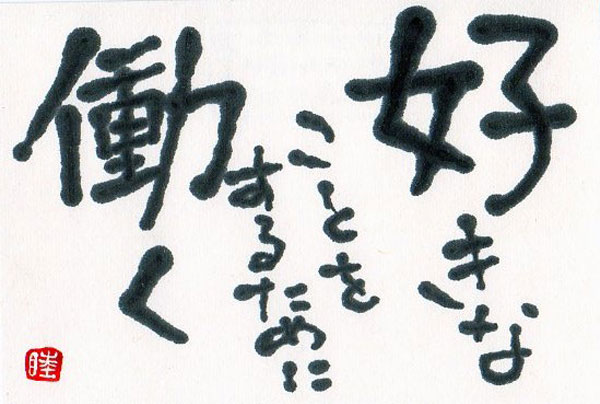 好きな
ことを
するために
働く
睦